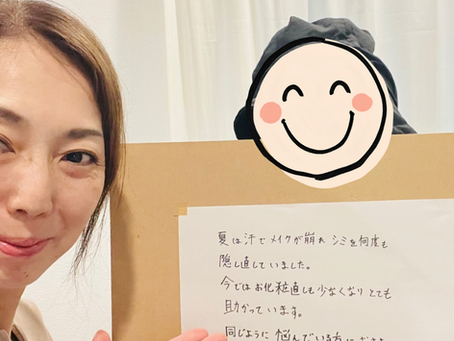 夏は汗でメイクが崩れ シミを何度も
隠し直していました。
今ではお化粧直しも少なくなりとても
助かっています。
同じように悩んでいる方に